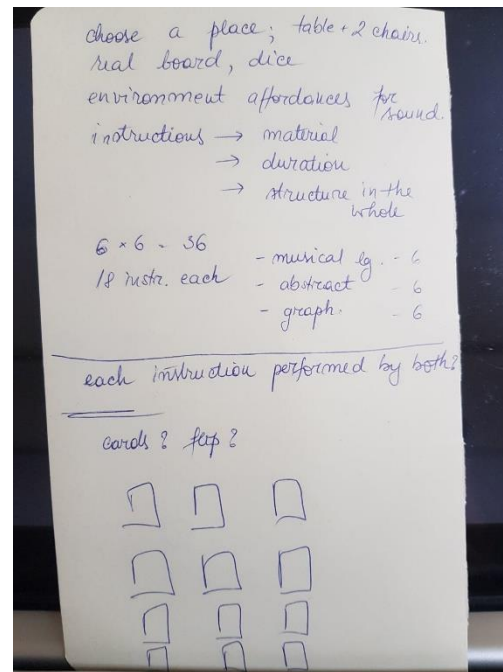 choose a place; table + 2 chairs.
real board, dice
environment affordances for sound.
instructions → material
→ duration
→ structure in the whole
6 x 6 - 36
18 instr. each
- musical lg. - 6
- abstract - 6
- graph. - 6
each instruction performed by both?
cards?